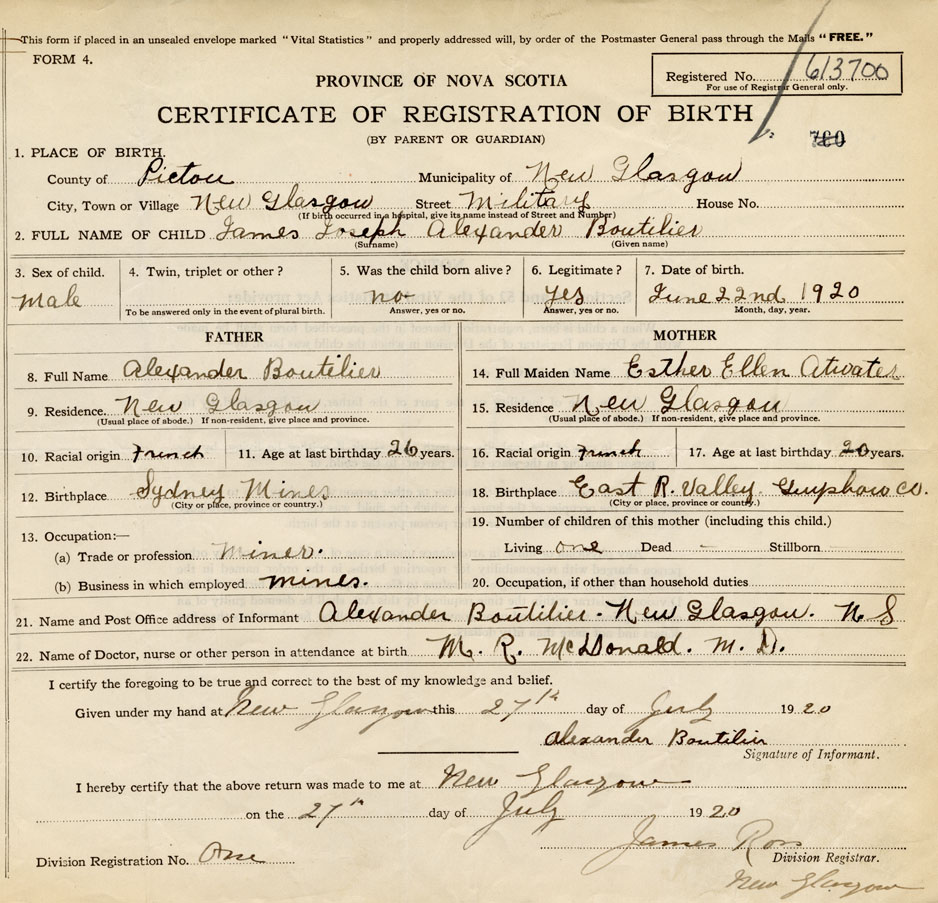 This form if placed in an unsealed envelope marked "Vital Statistics" and properly addressed will, by order of the Postmaster General pass through the Mails "FREE."
FORM 4.
Registered No. 613700
For use of Registrar General only.
PROVINCE OF NOVA SCOTIA
CERTIFICATE OF REGISTRATION OF BIRTH
(BY PARENT OR GUARDIAN)
780
1. PLACE OF BIRTH.
County of Pictou Municipality of New Glasgow
City, Town or Village New Glasgow Street Military House No.
(If birth occurred in a hospital, give its name instead of Street and Number)
2. FULL NAME OF CHILD James Joseph Alexander Boutilier
(Surname) (Given name)
3. Sex of child. 4. Twin, triplet or other? 5. Was the child born alive? 6. Legitimate? 7. Date of birth.
Male no yes June 22nd 1920
To be answered only in the event of plural birth. Answer, yes or no. Answer, yes or no. Month, day, year.
FATHER MOTHER
8. Full Name Alexander Boutilier 14. Full Maiden Name Esther Ellen Atwater
9. Residence. New Glasgow 15. Residence New Glasgow
(Usual place of abode.) If non-resident, give place and province. (Usual place of abode.) If non-resident, give place and province.
10. Racial origin French 11. Age at last birthday 26 years. 16. Racial origin French 17. Age at last birthday 20 years.
12. Birthplace Sydney Mines 18. Birthplace East R. Valley Co.
(City or place, province or country.) (City or place, province or country.)
19. Number of children of this mother (including this child.)
13. Occupation:—
(a) Trade or profession Miner. Living one Dead — Stillborn
(b) Business in which employed mines. 20. Occupation, if other than household duties
21. Name and Post Office address of Informant Alexander Boutilier - New Glasgow. N S
22. Name of Doctor, nurse or other person in attendance at birth M. R. McDonald. M. D.
I certify the foregoing to be true and correct to the best of my knowledge and belief.
Given under my hand at New Glasgow this 27th day of July 1920
Alexander Boutilier
Signature of Informant.
I hereby certify that the above return was made to me at New Glasgow
on the 27th day of July 1920
James Ross
Division Registration No. One Division Registrar.
New Glasgow